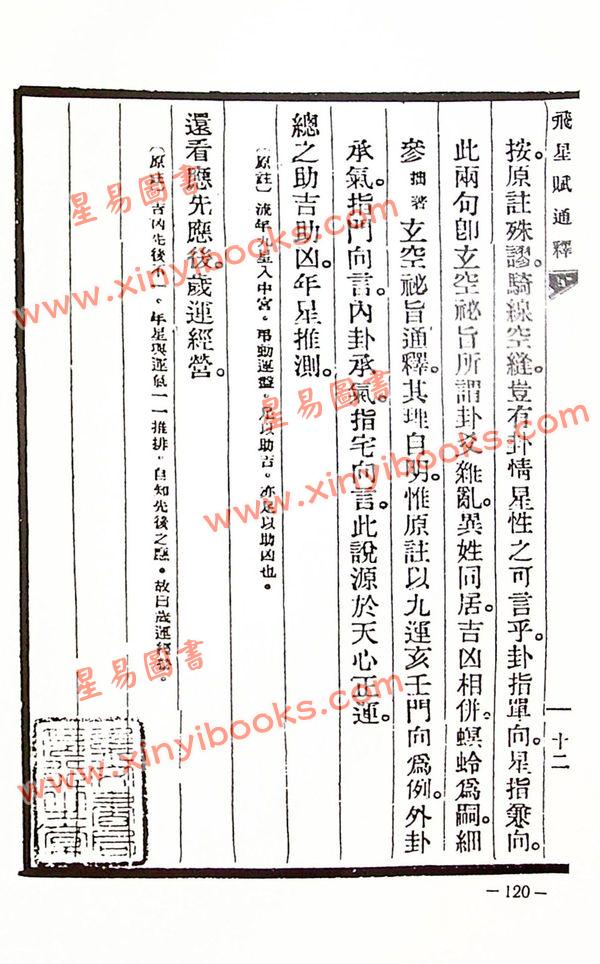 飛星賦通釋
十二
按。原註殊謬。騎線空縫。豈有卦情星性之可言乎。卦指單向。星指兼向。
此兩句卽玄空祕旨所謂卦爻雜亂。異姓同居。吉凶相併。螟蛉爲嗣。細
參拙著玄空祕旨通釋。其理自明。惟原註以九運亥壬門向爲例。外卦
承氣。指門向言。內卦承氣。指宅向言。此說源於天心正運。
總之助吉助凶。年星推測。
(原註)流年九星入中宮。吊動運盤。足以助吉。亦足以助凶也。
還看應先應後。歲運經營。
(原註)吉凶先後不一。年星與運氣一一推排。自知先後之應。故曰歲運經營。
星易圖書
www.xinyibooks.com
星易圖書
www.xinyibooks.com
星易圖書
www.xinyibooks.com
—120—